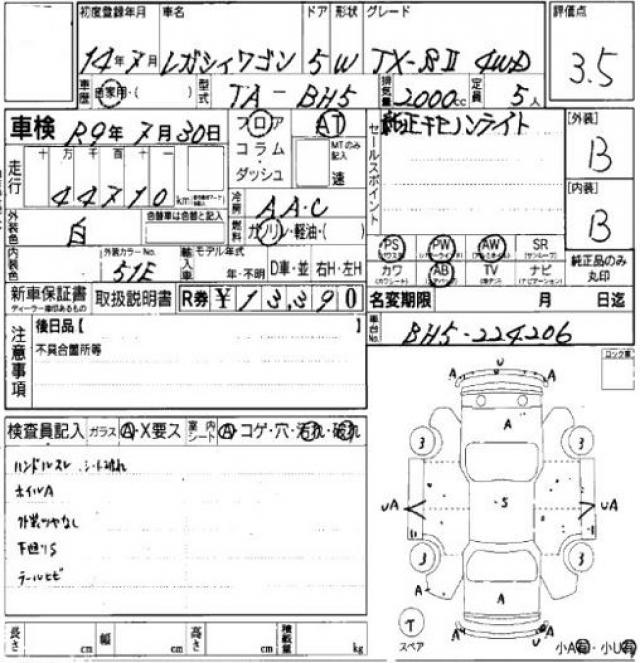 初度登録年月 車名 ドア 形状 グレード 評価点
14年7月 レガシィワゴン 5 W TX-SⅡ 4WD 3.5
車歴 自家用・( ) 型式 TA-BH5 排気量 2000cc 定員 5人
車検 R9年7月30日 フロア AT [外装]
コラム・ダッシュ MTのみ記入 速 セールスポイント 純正キセノンライト B
走行 十万千百十一 44710km [内装]
冷房 AA・C B
外装色 白 色替車は色替と記入 燃料 ガソリン・軽油・( )
内装色 外装カラーNo. 51E 輸入車 モデル年式 年・不明 D車・並 右H・左H
PS PW AW SR
カワ AB TV ナビ 純正品のみ丸印
新車保証書 取扱説明書 R券 ¥13,390 名変期限 月 日迄
ディーラー車印あるもの
車台No. BH5-224206
注意事項 後日品【 】
不具合箇所等
検査員記入 ガラス A・X要ス 室内シート A・コゲ・穴・汚れ・破れ
ハンドルスレ、シート破れ
ホイルA
外装ツヤなし
下廻りS
テールヒビ
ロック車
U
A A
A
3 3
UA S UA
3 3
A A
A
T
スペア
A U A
小A有・小U有
長さ cm 幅 cm 高さ cm 積載量 kg